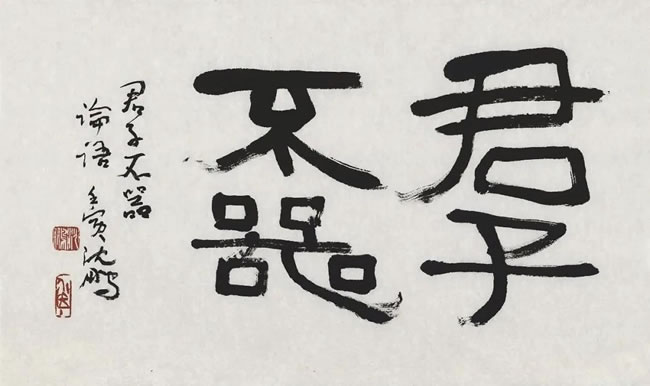 君子
不器
君子不器
论语 壬寅沈鹏